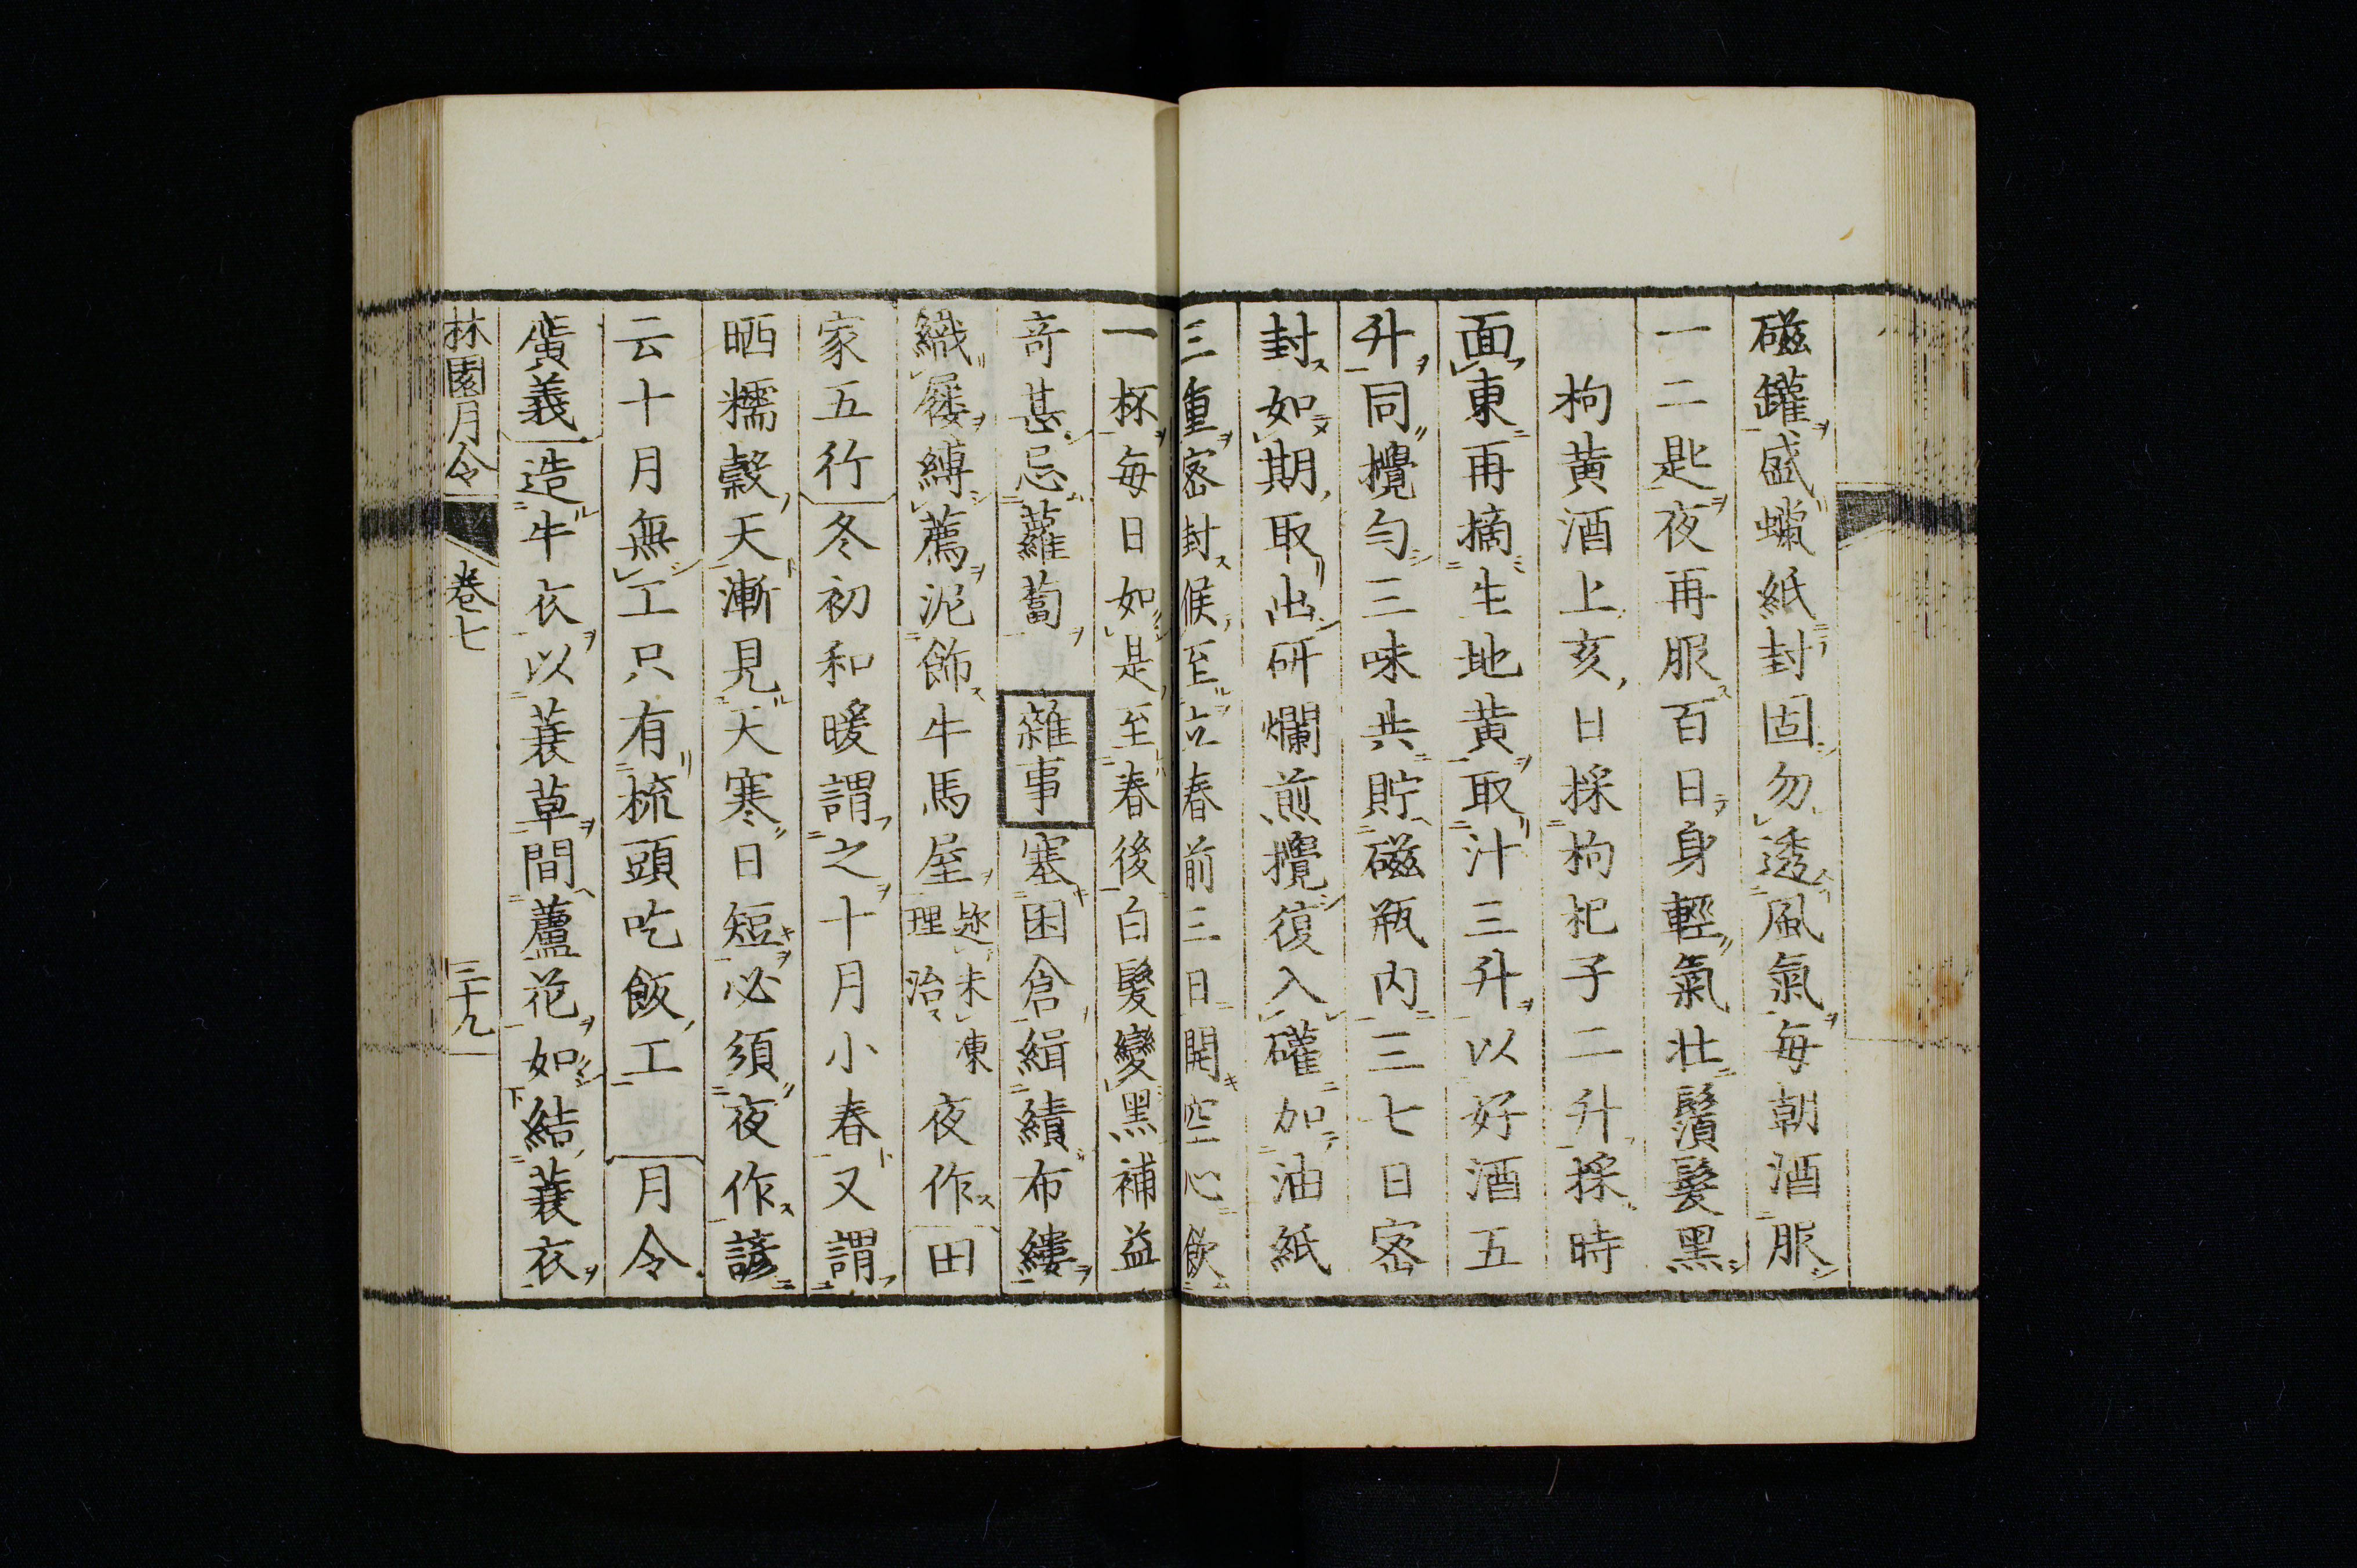 磁罐盛蠟紙封固勿透風氣毎朝酒服
一二匙夜再服百日身輕氣壯鬚髮黑
枸黃酒上亥日採枸杞子二升採時
面東再摘生地黃取汁三升以好酒五
升同攪勻三味共貯磁瓶内三七日宻
封如期取出研爛煎攪復入罐加油紙
三重宻封候至立春前三日開空心飲
一杯毎日如是至春後白髮變黑補益
竒甚忌蘿蔔 雜事 塞囷倉緝績布縷
織屨縛薦泥飾牛馬屋 趂未凍理治 夜作 田
家五行 冬初和暖謂之十月小春又謂
晒糯穀天漸見天寒日短必須夜作諺
云十月無工只有梳頭吃飯工 月令
廣義 造牛衣以蓑草間蘆花如結蓑衣
林園月令 卷七 三十九